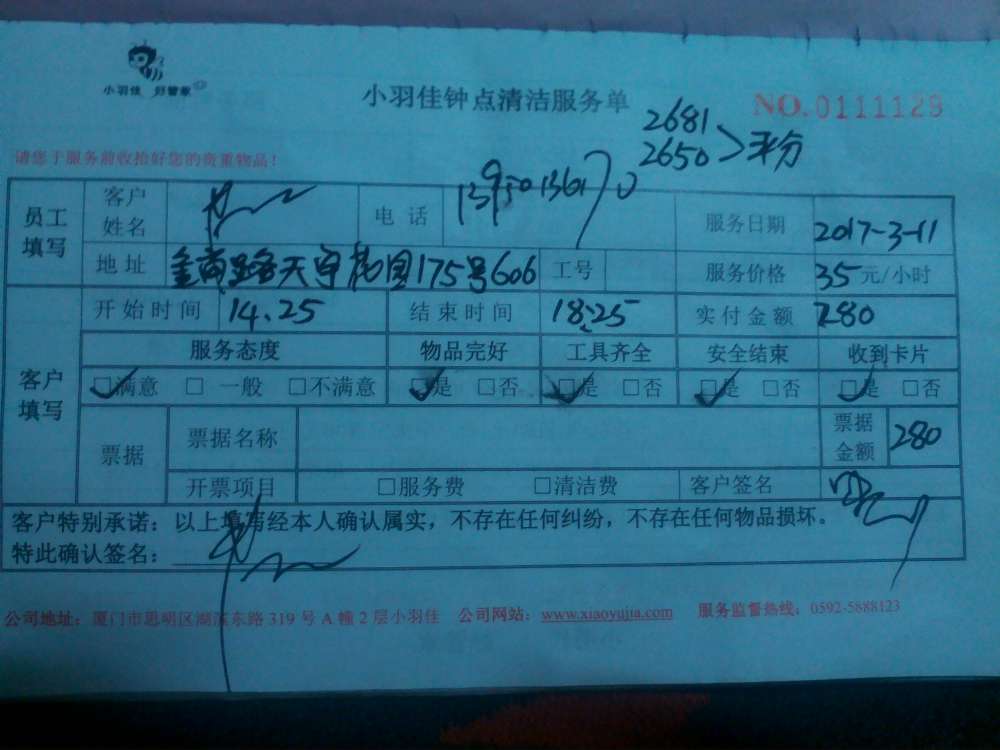 小羽佳 好管家
小羽佳钟点清洁服务单
NO.0111129
2681
2650 >平分
请您于服务前收拾好您的贵重物品！
员工填写 客户姓名 电话 服务日期 2017-3-11
地址 175号606 工号 服务价格 35元/小时
客户填写 开始时间 14.25 结束时间 18:25 实付金额 280
服务态度 物品完好 工具齐全 安全结束 收到卡片
☑满意 □一般 □不满意 ☑是 □否 ☑是 □否 ☑是 □否 ☑是 □否
票据 票据名称 票据金额 280
开票项目 □服务费 □清洁费 客户签名
客户特别承诺：以上填写经本人确认属实，不存在任何纠纷，不存在任何物品损坏。
特此确认签名：
公司地址：厦门市思明区湖滨东路319号A幢2层小羽佳 公司网站：www.xiaoyujia.com 服务监督热线：0592-5888123